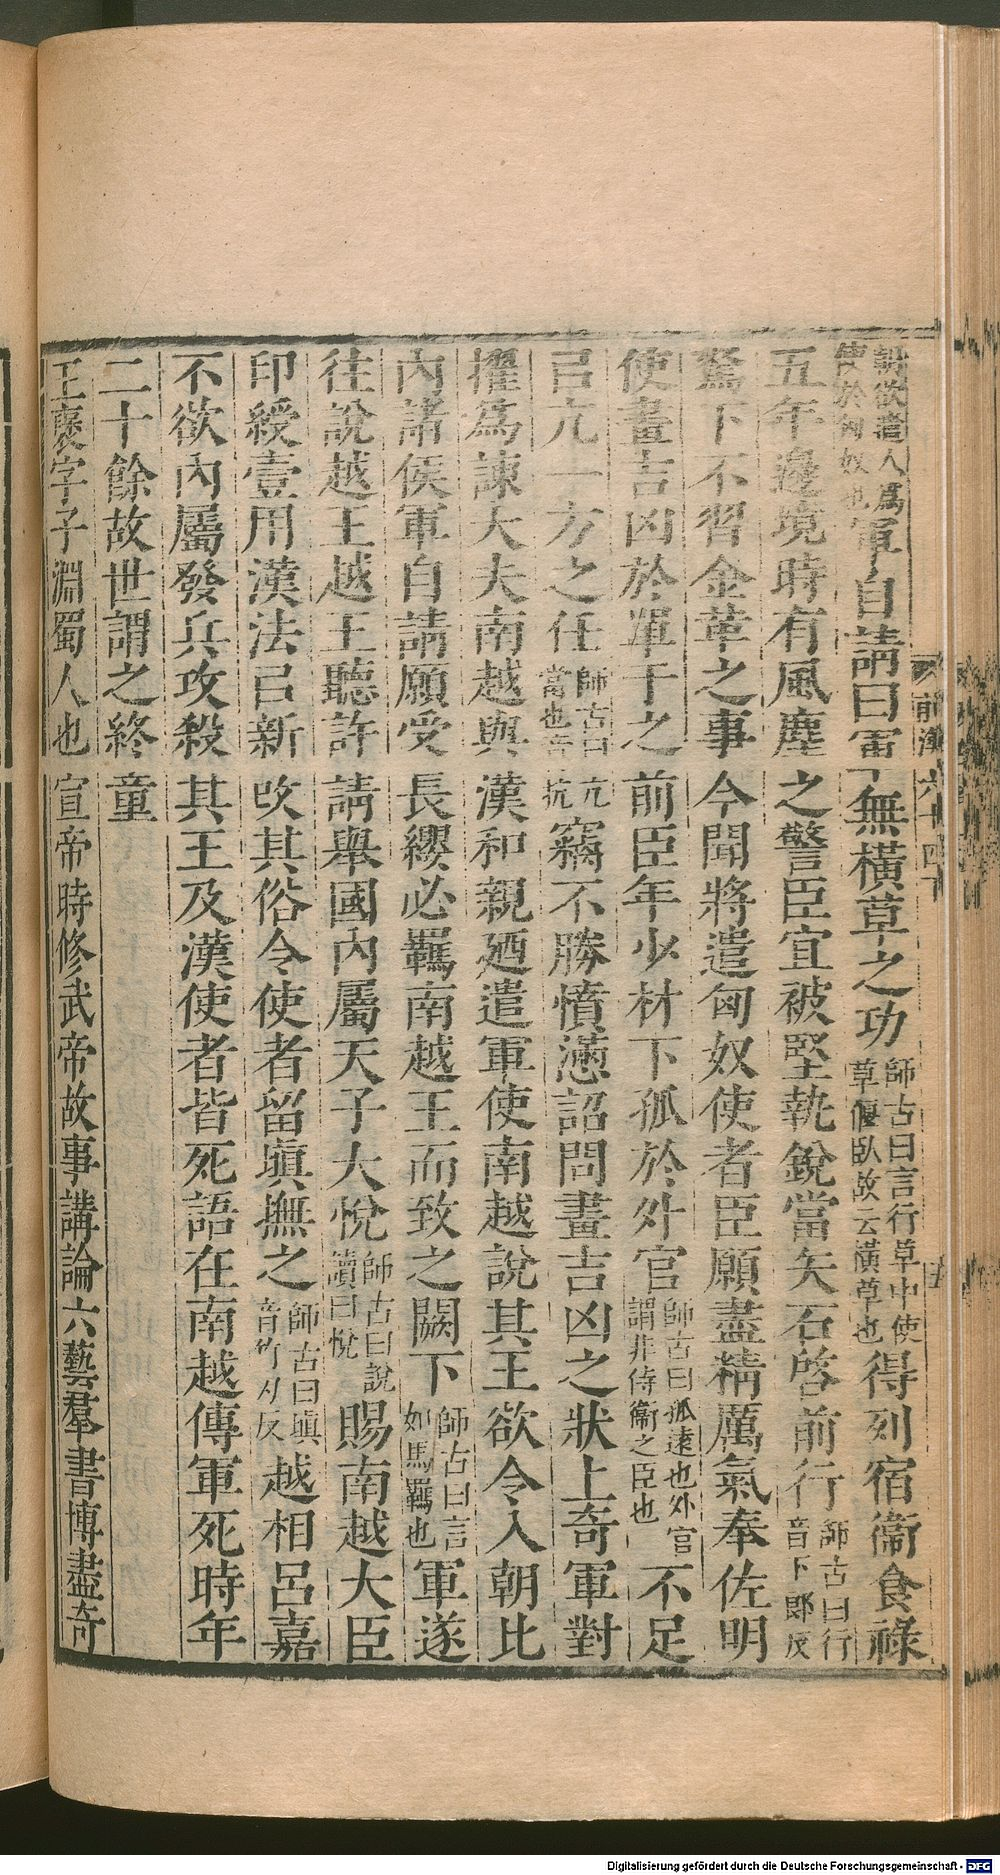 詔欲遣人爲使於匈奴也軍自請曰軍無橫草之功師古曰言行草中使草偃臥故云橫草也得列宿衞食祿
五年邊境時有風塵之警臣宜被堅執銳當矢石啓前行師古曰行音下郎反
駑下不習金革之事今聞將遣匈奴使者臣願盡精厲氣奉佐明
使畫吉凶於單于之前臣年少材下孤於外官師古曰孤遠也外官謂非侍衞之臣也不足
㠯亢一方之任師古曰亢當也音抗竊不勝憤懣詔問畫吉凶之狀上奇軍對
擢爲諫大夫南越與漢和親廼遣軍使南越說其王欲令入朝比
內諸侯軍自請願受長纓必羈南越王而致之闕下師古曰言如馬羈也軍遂
往說越王越王聽許請舉國內屬天子大悅師古曰說讀曰悅賜南越大臣
印綬壹用漢法㠯新改其俗令使者留塡撫之師古曰塡音竹刃反越相呂嘉
不欲內屬發兵攻殺其王及漢使者皆死語在南越傳軍死時年
二十餘故世謂之終童
王襃字子淵蜀人也宣帝時修武帝故事講論六藝羣書博盡奇
前漢六十四下
五
Digitalisierung gefördert durch die Deutsche Forschungsgemeinschaft - DFG